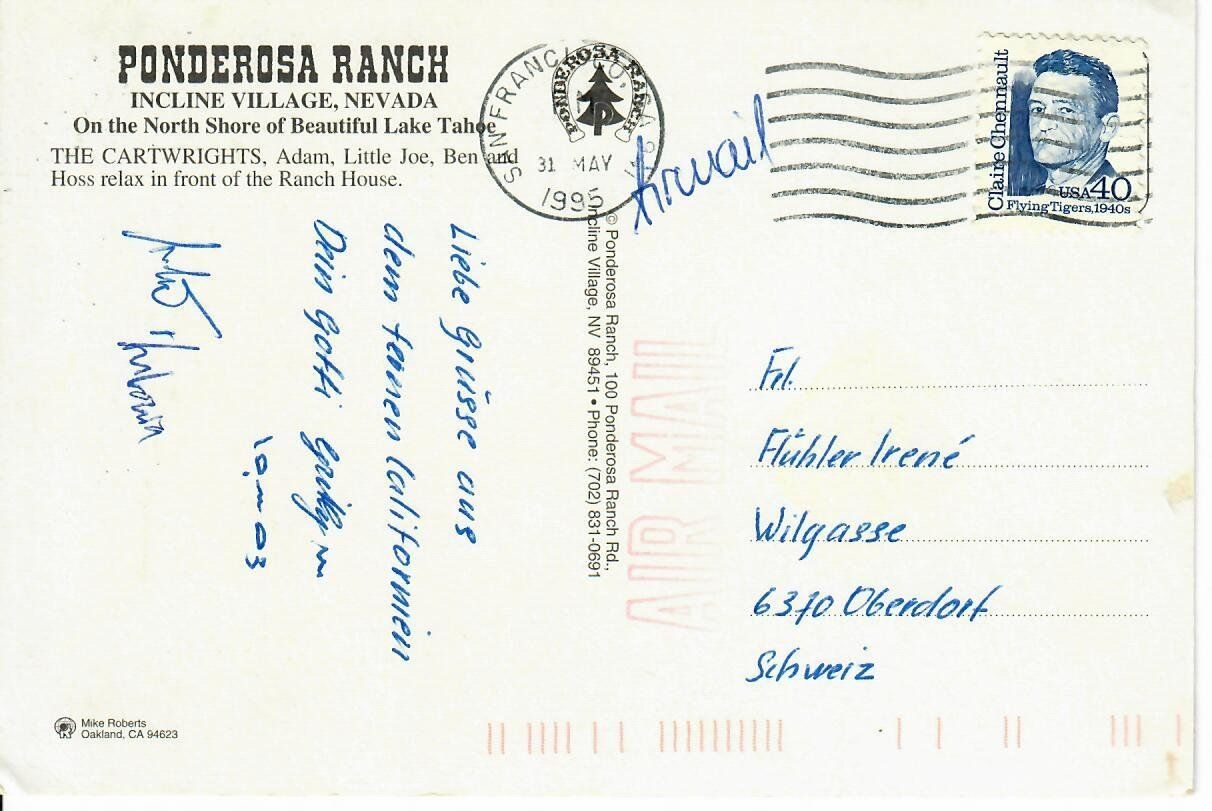 PONDEROSA RANCH
INCLINE VILLAGE, NEVADA
On the North Shore of Beautiful Lake Tahoe
THE CARTWRIGHTS, Adam, Little Joe, Ben and
Hoss relax in front of the Ranch House.
SAN FRANCISCO, CA
31 MAY
1995
PONDEROSA RANCH
P
Airmail
Claire Chennault
USA 40
Flying Tigers, 1940s
Liebe grüsse aus
dem fernen Californien
Dein Gotti
© Ponderosa Ranch, 100 Ponderosa Ranch Rd.,
Incline Village, NV 89451 • Phone: (702) 831-0691
AIR MAIL
Frl.
Flühler Irené
Wilgasse
6370 Oberdorf
Schweiz
Mike Roberts
Oakland, CA 94623